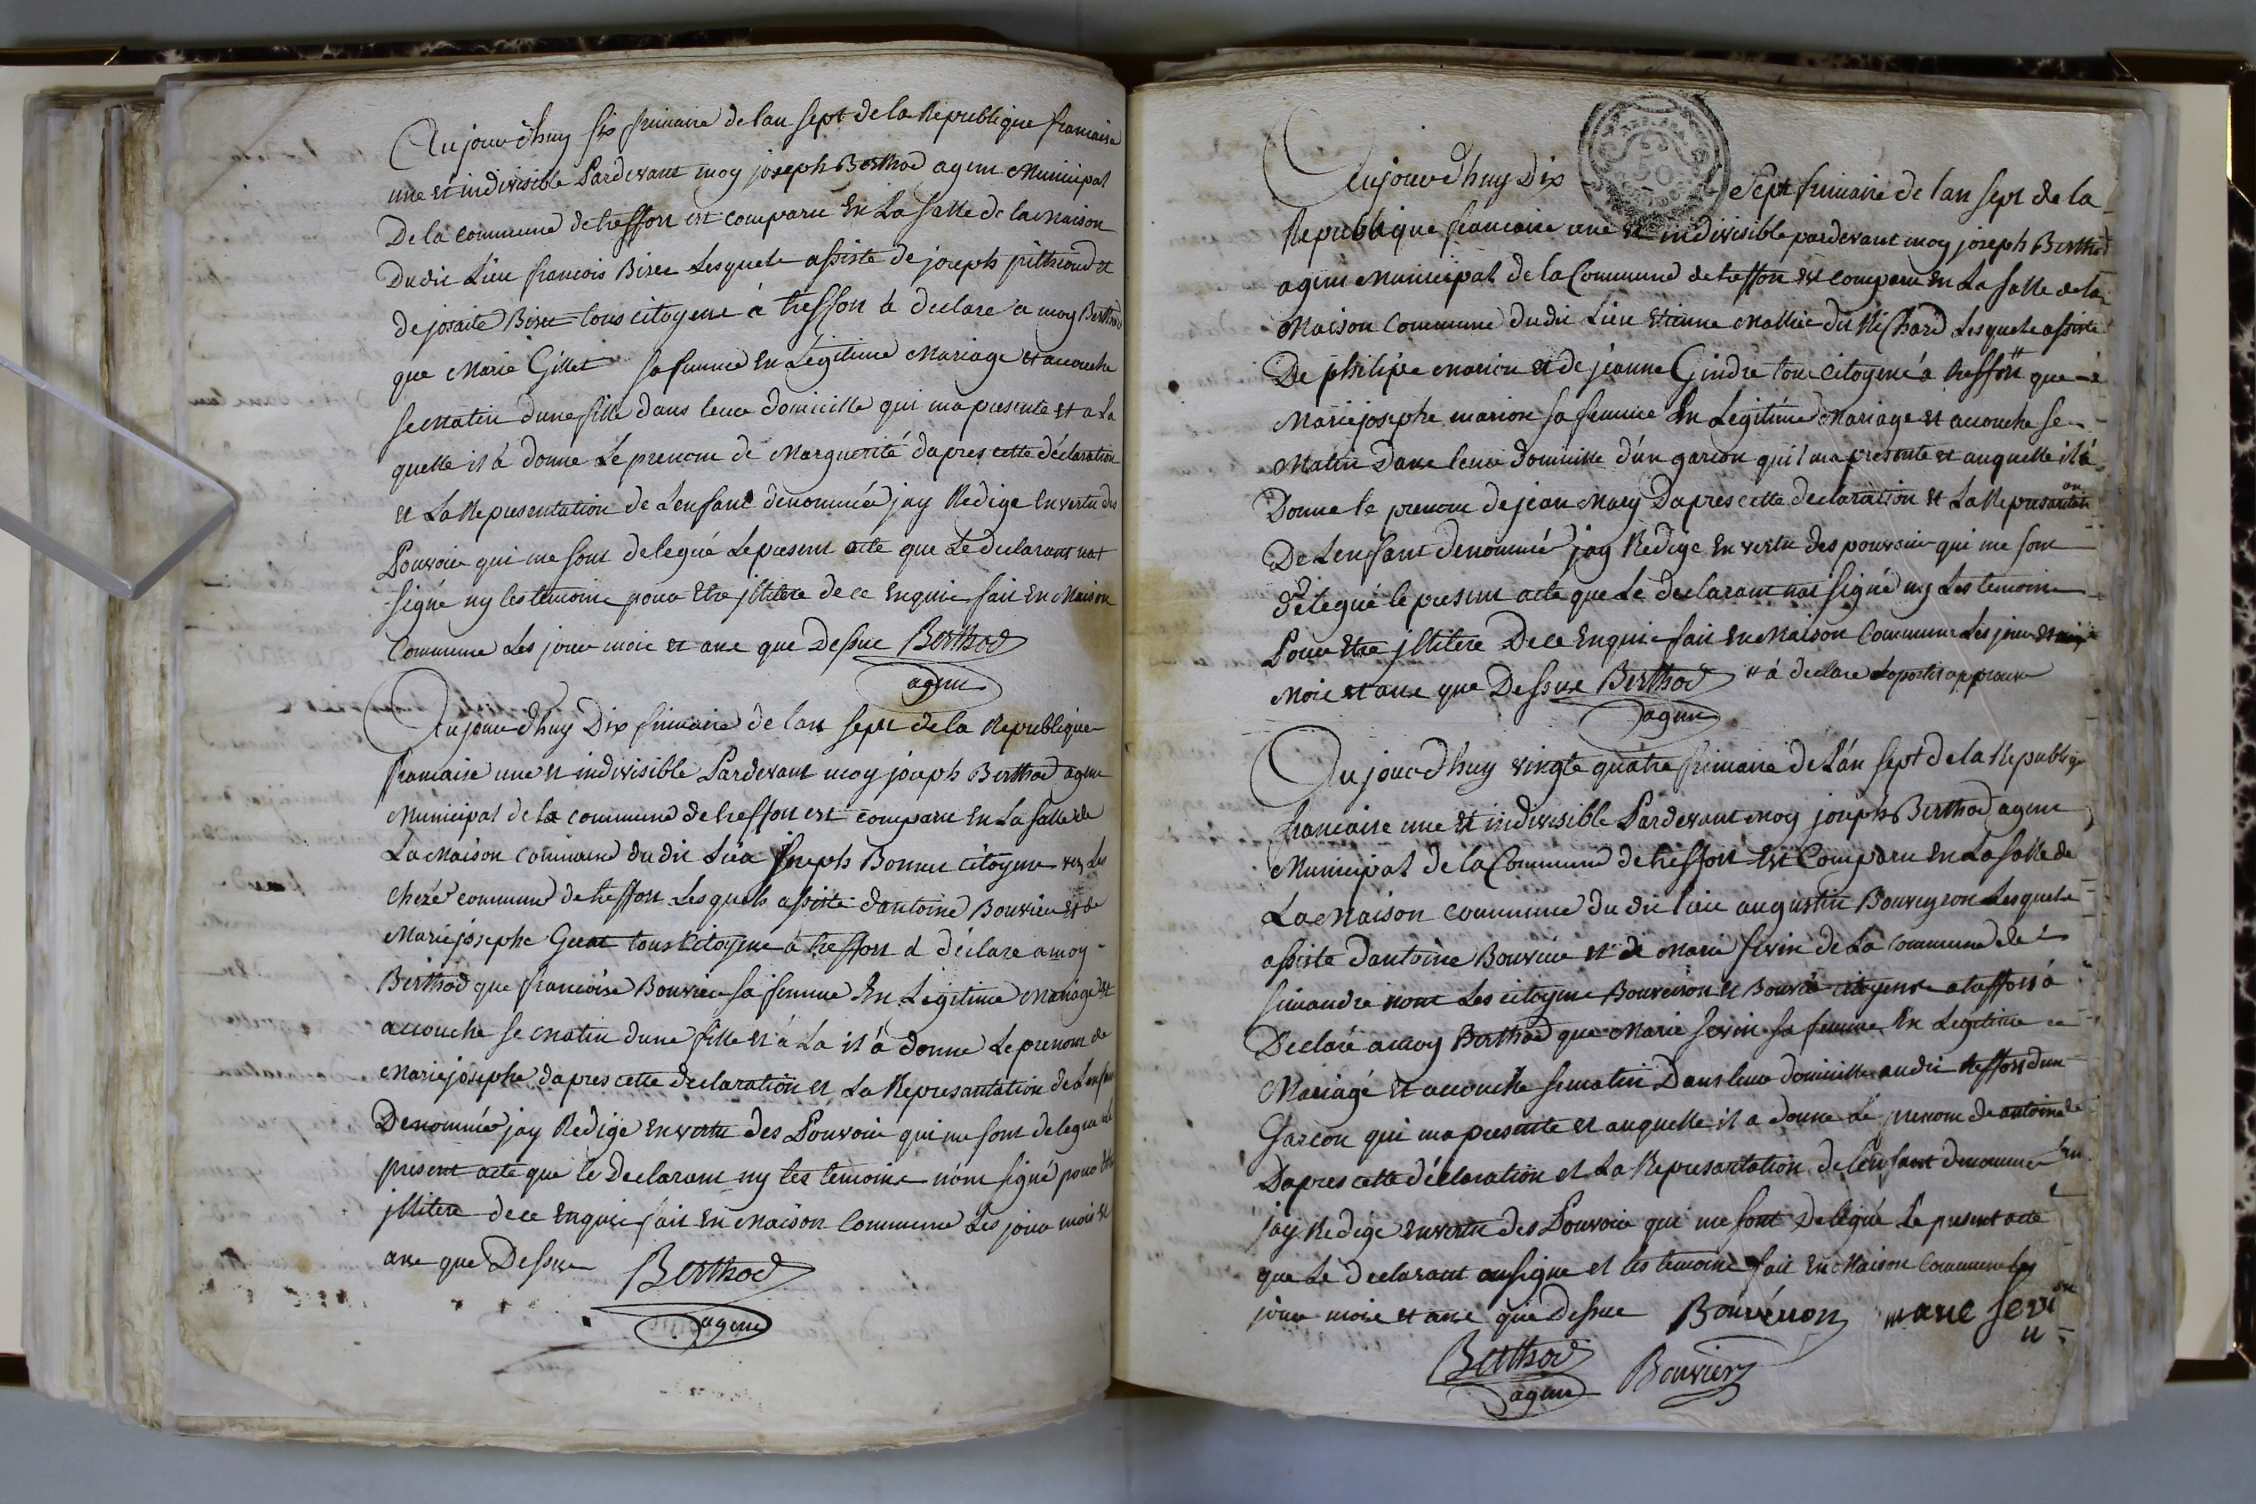 Aujourdhuy six frimaire de lan sept de la Republique francaise
une et indivisible Pardevant moy joseph Berthod agent Municipal
De la commune de treffort est comparu En La salle de la Maison
Dudit Lieu francois Biree Lesquels assiste de joseph pithioud et
de josaite Biree tous citoyens à treffort à declare a moy Berthod
que Marie Gillet sa femme En Légitime Mariage et accouche
se Matin dune fille dans leur domicille qui ma presente et a La
quelle il à donne Le prenom de Marguerite dapres cette déclaration
et La Representation de Lenfant denommée jay Redige En vertu des
Pouvoir qui me sont delegué Le present acte que Le declarant nat
signé ny les temoins pour Etre jllitere de ce Enquis fait En Maison
Commune Les jour mois et ans que Dessus Berthod
agent
Aujourdhuy Dix frimaire de lan sept de la Republique
francaise une et indivisible Pardevant moy joseph Berthod agent
Municipal de la commune de treffort est comparu En La salle de
La Maison commune du dit Lieu joseph Bonnet citoyens Les
cheze commune de treffort Lesquels assiste dantoine Bouvier et de
Mariejosephe tous Citoyens à treffort à déclare a moy
Berthod que francoise Bouvier sa femme En Légitime Mariage Et
accouche se Matin dune fille et à La il à donne Le prenom de
Mariejosephe dapres cette declaration et La Represantation de Lenfant
Denommée jay Redige En vertu des Pouvoir qui me sont delegue le
present acte que le Declarant ny les temoins nont signé pour Etre
jllitere de ce Enquis fait En Maison Commune Les jour mois et
ans que Dessus Berthod
agent
Aujourdhuy Dix Sept frimaire de lan sept de la
Republique francaise une et indivisible pardevant moy joseph Berthod
agent Municipal de la Commune de treffort est comparu En La salle de la
Maison Commune du dit Lieu Etienne Mathie dit Richard Lesquels assiste
De philipe marion et de jeanne Gindre tous Citoyens à treffort " que
Mariejosephe marion sa femme En Legitime Mariage et accouche se
Matin Dans leur domicille d'un garcon quil ma presente et auquelle il à
Donne le prenom de jean Mary Dapres cette declaration et La Represantation
De Lenfant denommé jay Redige En vertu des pouvoir qui me sont
délegué le present acte que Le declarant nat signé ny Les temoins
Pour Etre jllitere De ce Enquis fait En Maison Commune Les jour et
Mois et ans que Dessus Berthod " à declare apprauvé
agent
Aujourdhuy vingte quatre frimaire de L'an sept de la Republique
francaise une et indivisible Pardevant moy joseph Berthod agent
Municipal de la Commune de treffort Est Comparu En La salle de
La Maison commune du dit lieu augustin Bouveyron Lesquels
assiste dantoine Bouvier et de Marie sevin de La commune de
simandre nom Les citoyens Bouveiron et Bouvié citoyens a taffort à
Declaré a moy Berthod que Marie sevin sa femme En Legitime
Mariagé et accouche se matin Dans leur domicille audit treffort dun
Garcon qui ma presente et auquelle il a donne Le prenom de antoine
Dapres cette déclaration et La Represantation de Lenfant denommé
jay Redige En vertu des Pouvoir qui me sont Delégué Le present acte
que Le declarant on signe et les temoins fait En Maison Commune Les
jour mois et ans que Dessus Bouvéron marie sevi
n
Berthod Bouvier
agent